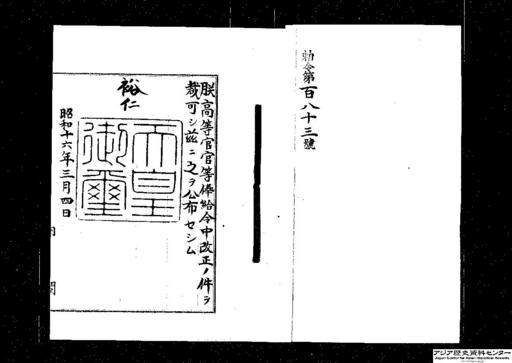 勅令第百八十三號
朕高等官官等俸給令中改正ノ件ヲ
裁可シ茲ニ之ヲ公布セシム
裕仁
天皇
御璽
昭和十六年三月四日
内閣
アジア歴史資料センター
Japan Center for Asian Historical Records